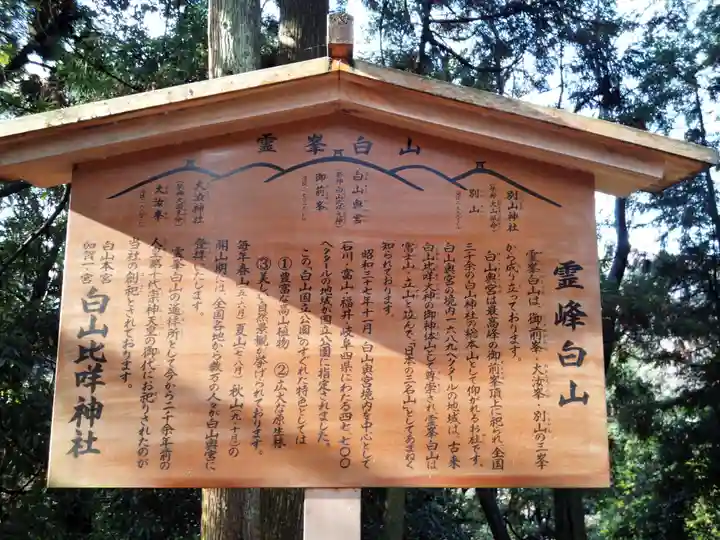 霊峯白山
別山神社
別山
白山奥宮
御前峯
大汝神社
大汝峯
霊峰白山
霊峯白山は、御前峯・大汝峯・別山の三峯
から成り立っております。
白山奥宮は最高峰の御前峯頂上に祀られ、全国
三千余の白山神社の総本山として仰がれるお社です。
白山奥宮の境内二、六八九ヘクタールの地域は、古来
白山比咩大神の御神体山として尊崇され、霊峯白山は
富士山・立山と並んで、「日本の三名山」としてあまねく
知られております。
昭和三十七年十一月、白山奥宮境内を中心として
石川・富山・福井・岐阜四県にわたる四七、七〇〇
ヘクタールの地域が国立公園に指定されました。
この白山国立公園のすぐれた特色としては
①豊富な高山植物 ②広大な原生林
③美しい自然景観が挙げられております。
毎年春山(五・六月)夏山(七・八月)秋山(九・十月)の
開山期には、全国各地から数万の人々が白山奥宮に
登拝いたします。
霊峯白山の遥拝所として、今から二千余年前の
人皇第十代崇神天皇の御代にお祀りされたのが
当社の創祀とされております。
白山本宮
加賀一ノ宮
白山比咩神社